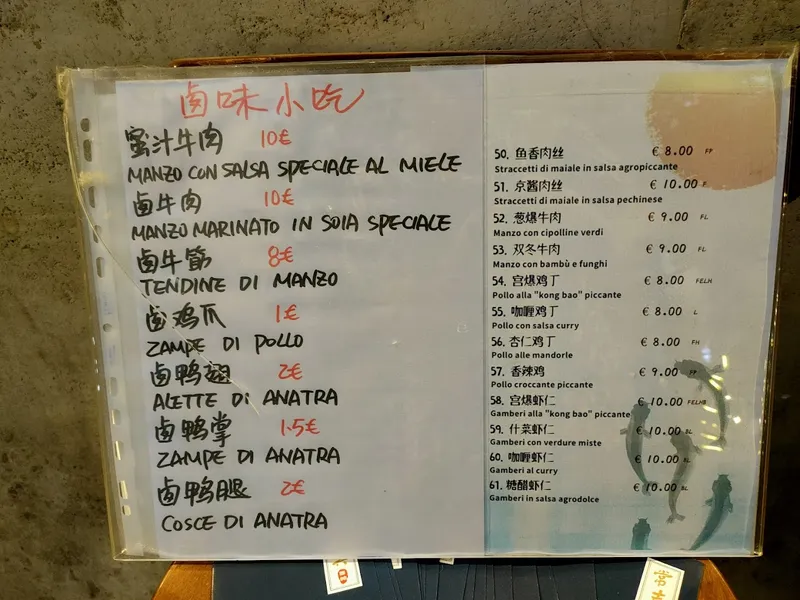 卤味小吃
蜜汁牛肉 10€
MANZO CON SALSA SPECIALE AL MIELE
卤牛肉 10€
MANZO MARINATO IN SOIA SPECIALE
卤牛筋 8€
TENDINE DI MANZO
卤鸡爪 1€
ZAMPE DI POLLO
卤鸭翅 2€
ALETTE DI ANATRA
卤鸭掌 1.5€
ZAMPE DI ANATRA
卤鸭腿 2€
COSCE DI ANATRA
50. 鱼香肉丝 € 8.00 FF
Straccetti di maiale in salsa agropiccante
51. 京酱肉丝 € 10.00 F
Straccetti di maiale in salsa pechinese
52. 葱爆牛肉 € 9.00 FL
Manzo con cipolline verdi
53. 双冬牛肉 € 9.00 FL
Manzo con bambù e funghi
54. 宫爆鸡丁 € 8.00 FELH
Pollo alla "kong bao" piccante
55. 咖喱鸡丁 € 8.00 L
Pollo con salsa curry
56. 杏仁鸡丁 € 8.00 FH
Pollo alle mandorle
57. 香辣鸡 € 9.00 FF
Pollo croccante piccante
58. 宫爆虾仁 € 10.00 FELHB
Gamberi alla "kong bao" piccante
59. 什菜虾仁 € 10.00 BL
Gamberi con verdure miste
60. 咖喱虾仁 € 10.00 BL
Gamberi al curry
61. 糖醋虾仁 € 10.00 BL
Gamberi in salsa agrodolce